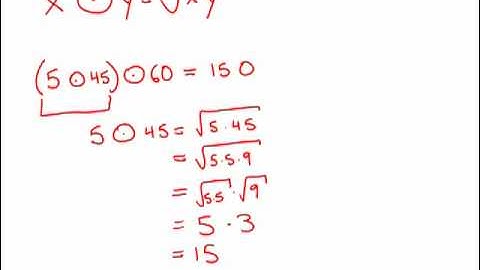 x ⊙ y = √xy
(5 ⊙ 45) ⊙ 60 = 15 0
5 ⊙ 45 = √5·45
= √5·5·9
= √5·5 · √9
= 5 · 3
= 15